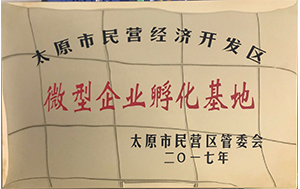 太原市民营经济开发区
微型企业孵化基地
太原市民营区管委会
二〇一七年